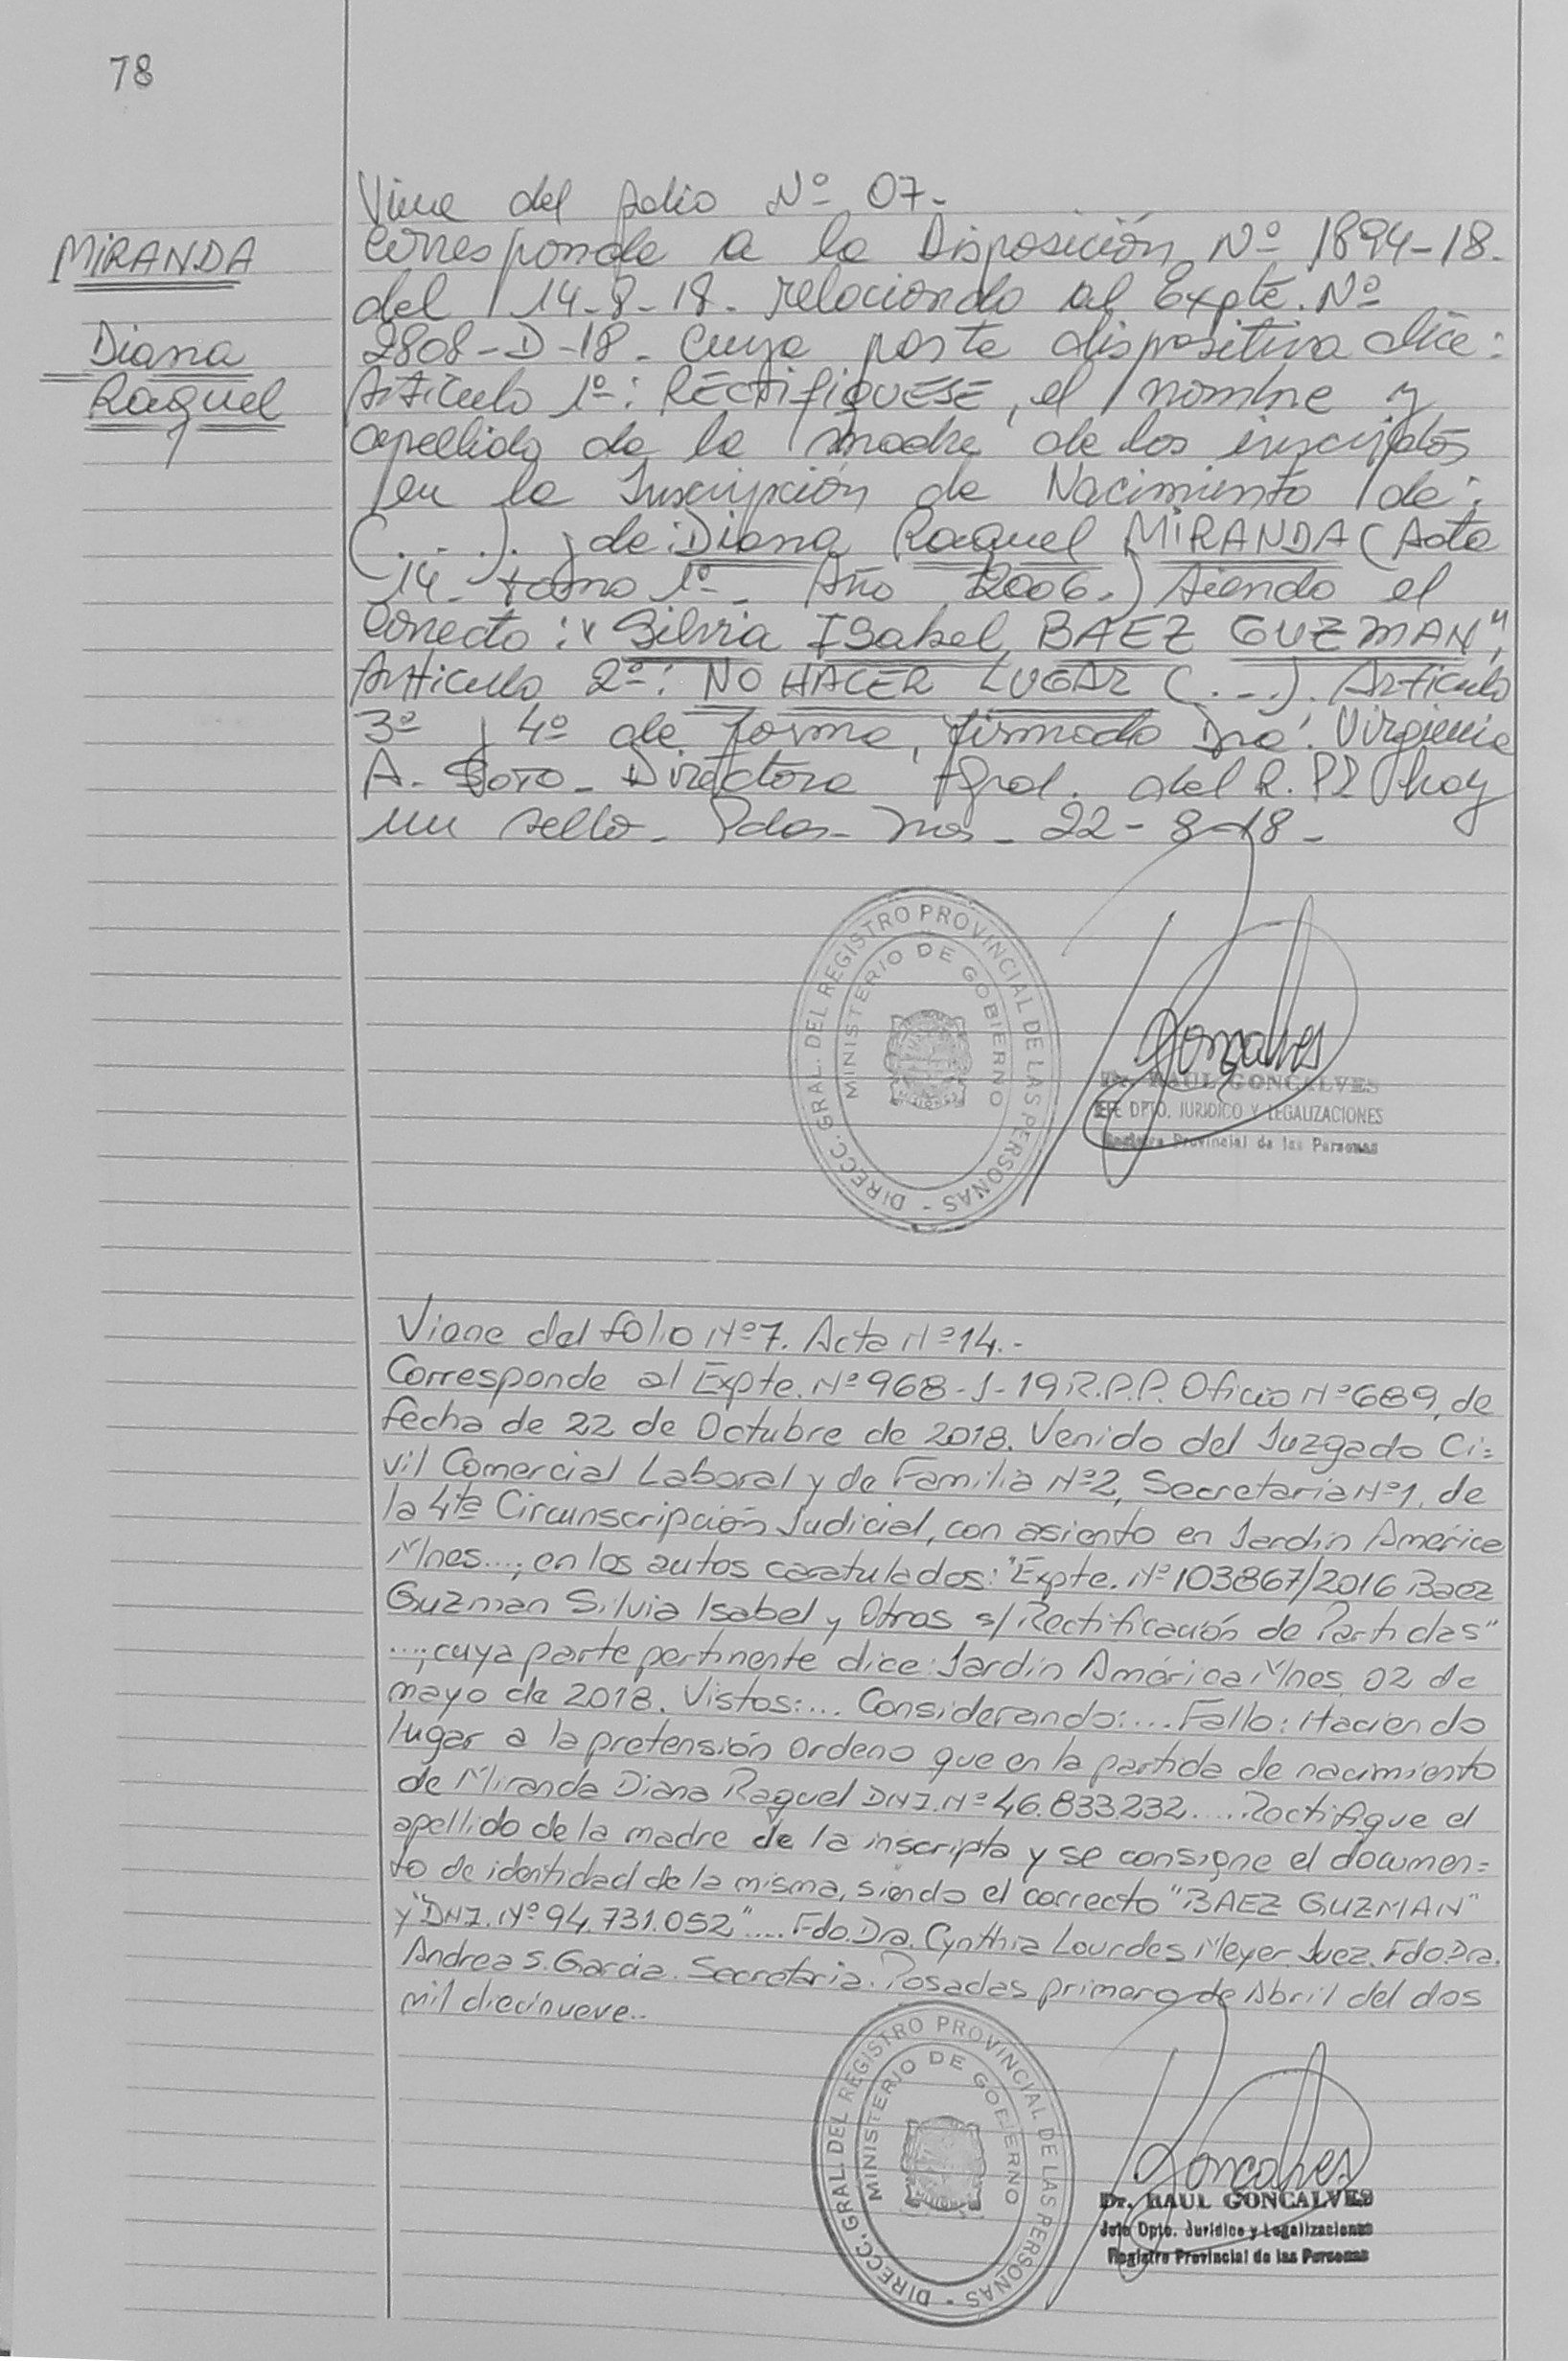 78
Viene del folio Nº 07-
MIRANDA
Corresponde a la Disposición Nº 1894-18-
del 14-8-18- relacionado al Expte. Nº
Diana
2808-D-18- cuya parte dispositiva dice:
Raquel
Artículo 1º: RECTIFIQUESE, el nombre y
apellido de la madre de los inscriptos
en la Inscripción de Nacimiento de:
(. . .). y de: Diana Raquel MIRANDA (Acta
14- tomo 1º- Año 2006.) siendo el
correcto: "Silvia ISabel BAEZ GUZMAN",
Artículo 2º: NO HACER LUGAR (. . .). Artículo
3º y 4º de forma, firmado Dra. Virginia
A. Soto- Directora Gral. del R.PP hay
un sello- Pdas- Mnes- 22-8-18-
DIRECC. GRAL. DEL REGISTRO PROVINCIAL DE LAS PERSONAS -
MINISTERIO DE GOBIERNO
MISIONES
Goncalves
Dr. RAUL GONCALVES
JEFE DPTO. JURIDICO Y LEGALIZACIONES
Registro Provincial de las Personas
Viene del folio Nº7. Acta Nº14.-
Corresponde al Expte. Nº968-J-19 R.P.P. Oficio Nº689, de
fecha de 22 de Octubre de 2018. Venido del Juzgado Ci=
vil Comercial Laboral y de Familia Nº2, Secretaria Nº1, de
la 4ta Circunscripción Judicial, con asiento en Jardín América
Mnes...; en los autos caratulados: "Expte. Nº103867/2016 Baez
Guzman Silvia Isabel y Otros s/ Rectificación de Partidas"
....; cuya parte pertinente dice: Jardín América Mnes, 02 de
mayo de 2018. Vistos:.... Considerando:.... Fallo: Haciendo
lugar a la pretensión ordeno que en la partida de nacimiento
de Miranda Diana Raquel DNI.Nº46.833.232.....Rectifique el
apellido de la madre de la inscripta y se consigne el documen=
to de identidad de la misma, siendo el correcto "BAEZ GUZMAN"
y "DNI.Nº94.731.052".... Fdo.Dra. Cynthia Lourdes Meyer Juez. Fdo.Dra.
Andrea S. Garcia. Secretaria. Posadas primero de Abril del dos
mil diecinueve..
DIRECC. GRAL. DEL REGISTRO PROVINCIAL DE LAS PERSONAS -
MINISTERIO DE GOBIERNO
MISIONES
Goncalves
Dr. RAUL GONCALVES
Jefe Dpto. Juridico y Legalizaciones
Registro Provincial de las Personas